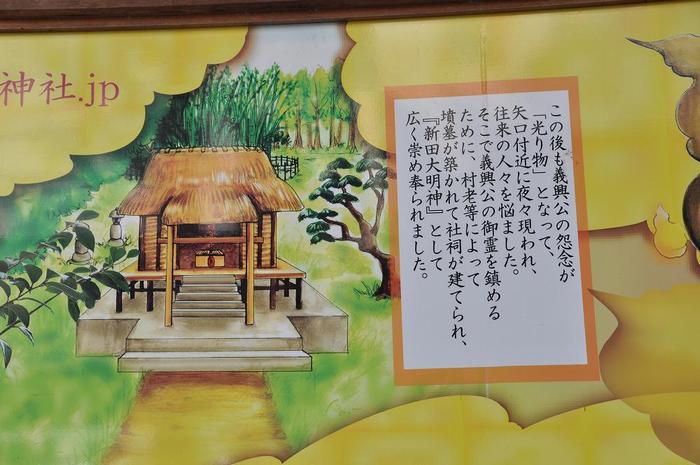 神社.jp
この後も義興公の怨念が
「光り物」となって、
矢口付近に夜々現われ、
往来の人々を悩ました。
そこで義興公の御霊を鎮める
ために、村老等によって
墳墓が築かれて社祠が建てられ、
『新田大明神』として
広く崇め奉られました。